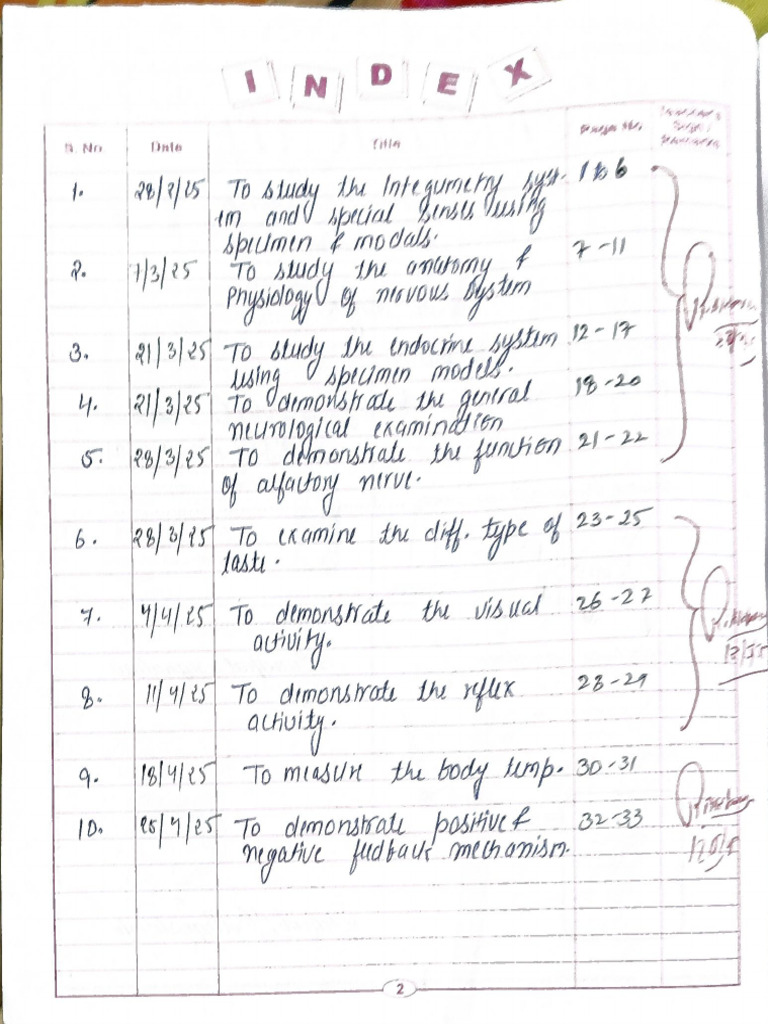 INDEX
S. No. Date Title Page No.
1. 28/2/25 To study the Integumetry syst- 1 to 6
em and special senses using
specimen & modals.
2. 7/3/25 To study the anatomy & 7-11
Physiology of nervous system
3. 21/3/25 To study the endocrine system 12-17
using specimen models.
4. 21/3/25 To demonstrate the general 18-20
neurological examination
5. 28/3/25 To demonstrate the function 21-22
of alfactory nerve.
6. 28/3/25 To examine the diff. type of 23-25
taste.
7. 4/4/25 To demonstrate the visual 26-27
activity.
8. 11/4/25 To demonstrate the reflex 28-29
activity.
9. 18/4/25 To measure the body temp. 30-31
10. 25/4/25 To demonstrate positive & 32-33
negative fedback mechanism.
2